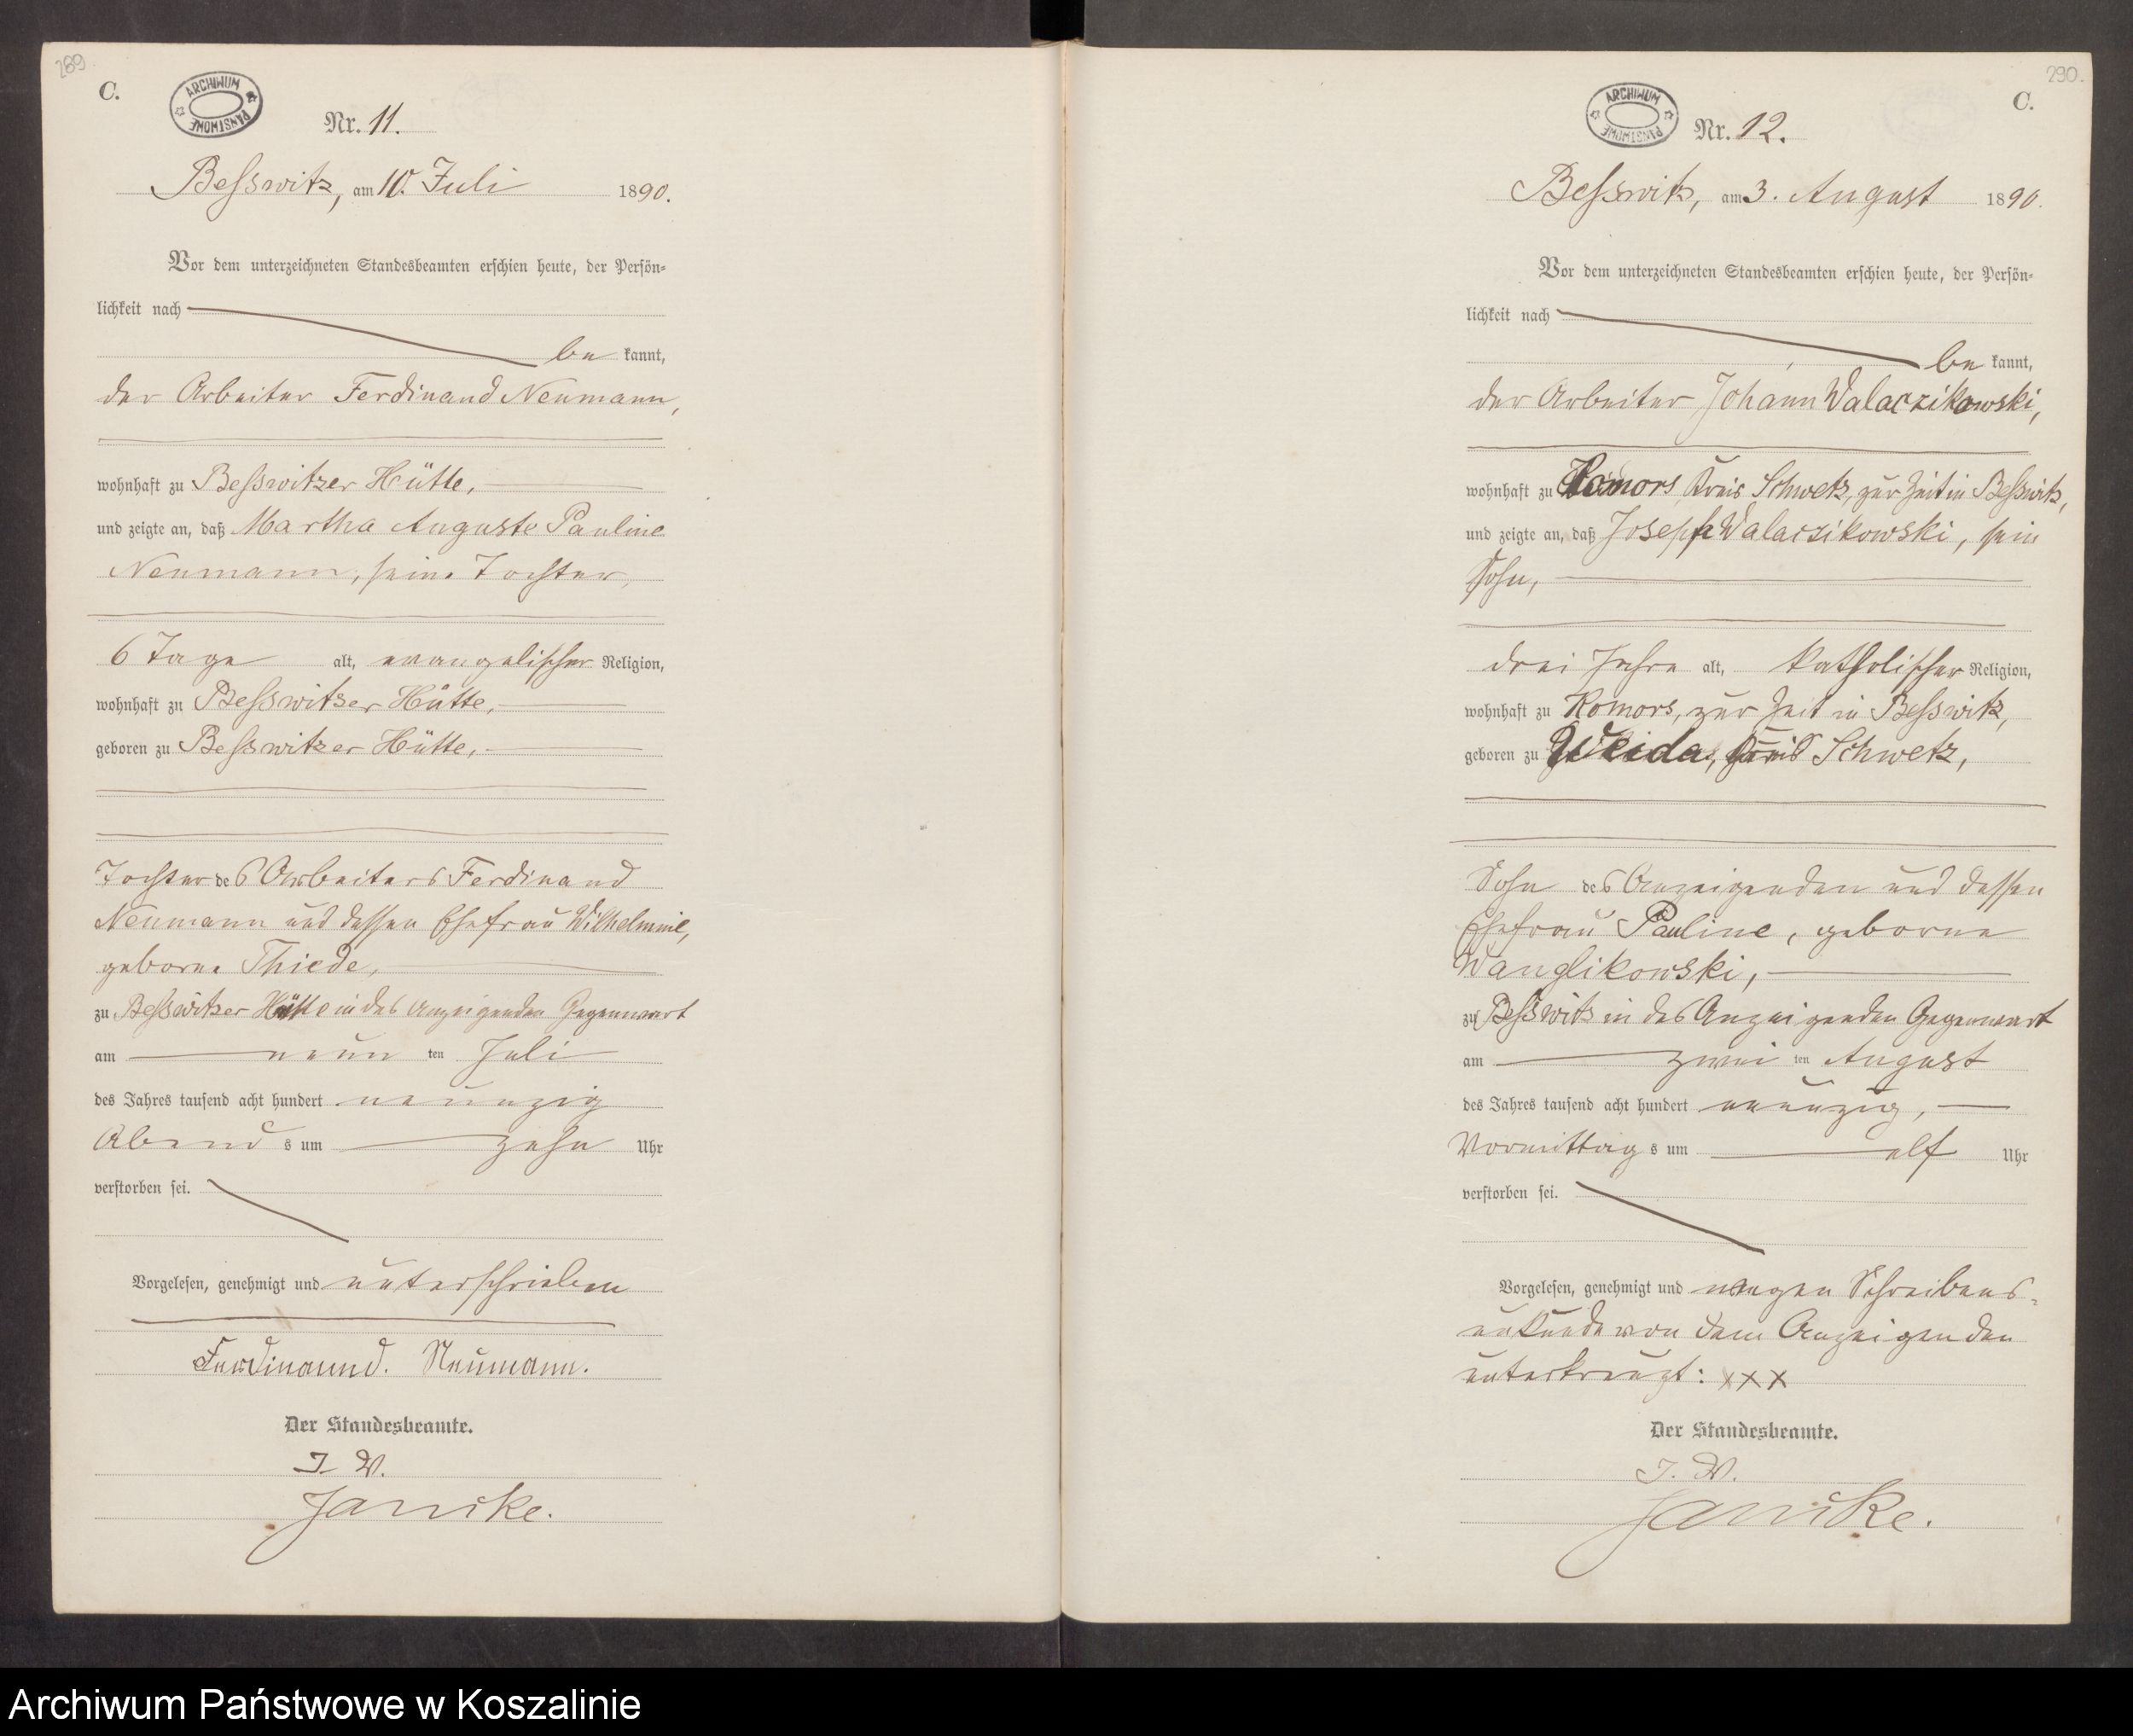 289.
C.
ARCHIWUM PAŃSTWOWE
Nr. 11.
Beßwitz, am 10. Juli 1890.
Vor dem unterzeichneten Standesbeamten erschien heute, der Persön-
lichkeit nach
be kannt,
der Arbeiter Ferdinand Neumann,
wohnhaft zu Beßwitzer Hütte,
und zeigte an, daß Martha Auguste Pauline
Neumann, seine Tochter,
6 Tage alt, evangelischer Religion,
wohnhaft zu Beßwitzer Hütte,
geboren zu Beßwitzer Hütte,
Tochter des Arbeiters Ferdinand
Neumann und dessen Ehefrau Wilhelmine,
geborne Thiede,
zu Beßwitzer Hütte in des Anzeigenden Gegenwart
am neun ten Juli
des Jahres tausend acht hundert neunzig
Abend s um zehn Uhr
verstorben sei.
Vorgelesen, genehmigt und unterschrieben
Ferdinaund. Neumann.
Der Standesbeamte.
J. V.
Janicke.
290.
C.
ARCHIWUM PAŃSTWOWE
Nr. 12.
Beßwitz, am 3. August 1890.
Vor dem unterzeichneten Standesbeamten erschien heute, der Persön-
lichkeit nach
be kannt,
der Arbeiter Johann Walaczikowski,
wohnhaft zu Komors Kreis Schwetz, zur Zeit in Beßwitz,
und zeigte an, daß Joseph Walaczikowski, sein
Sohn,
drei Jahre alt, katholischer Religion,
wohnhaft zu Komors, zur Zeit in Beßwitz,
geboren zu Kreis Schwetz,
Sohn des Anzeigenden und dessen
Ehefrau Pauline, geborne
Wanglikowski,
zu Beßwitz in des Anzeigenden Gegenwart
am zwei ten August
des Jahres tausend acht hundert neunzig,
Vormittag s um elf Uhr
verstorben sei.
Vorgelesen, genehmigt und wegen Schreibens-
unkunde von dem Anzeigenden
unterkreuzt: xxx
Der Standesbeamte.
J. V.
Janicke.
Archiwum Państwowe w Koszalinie